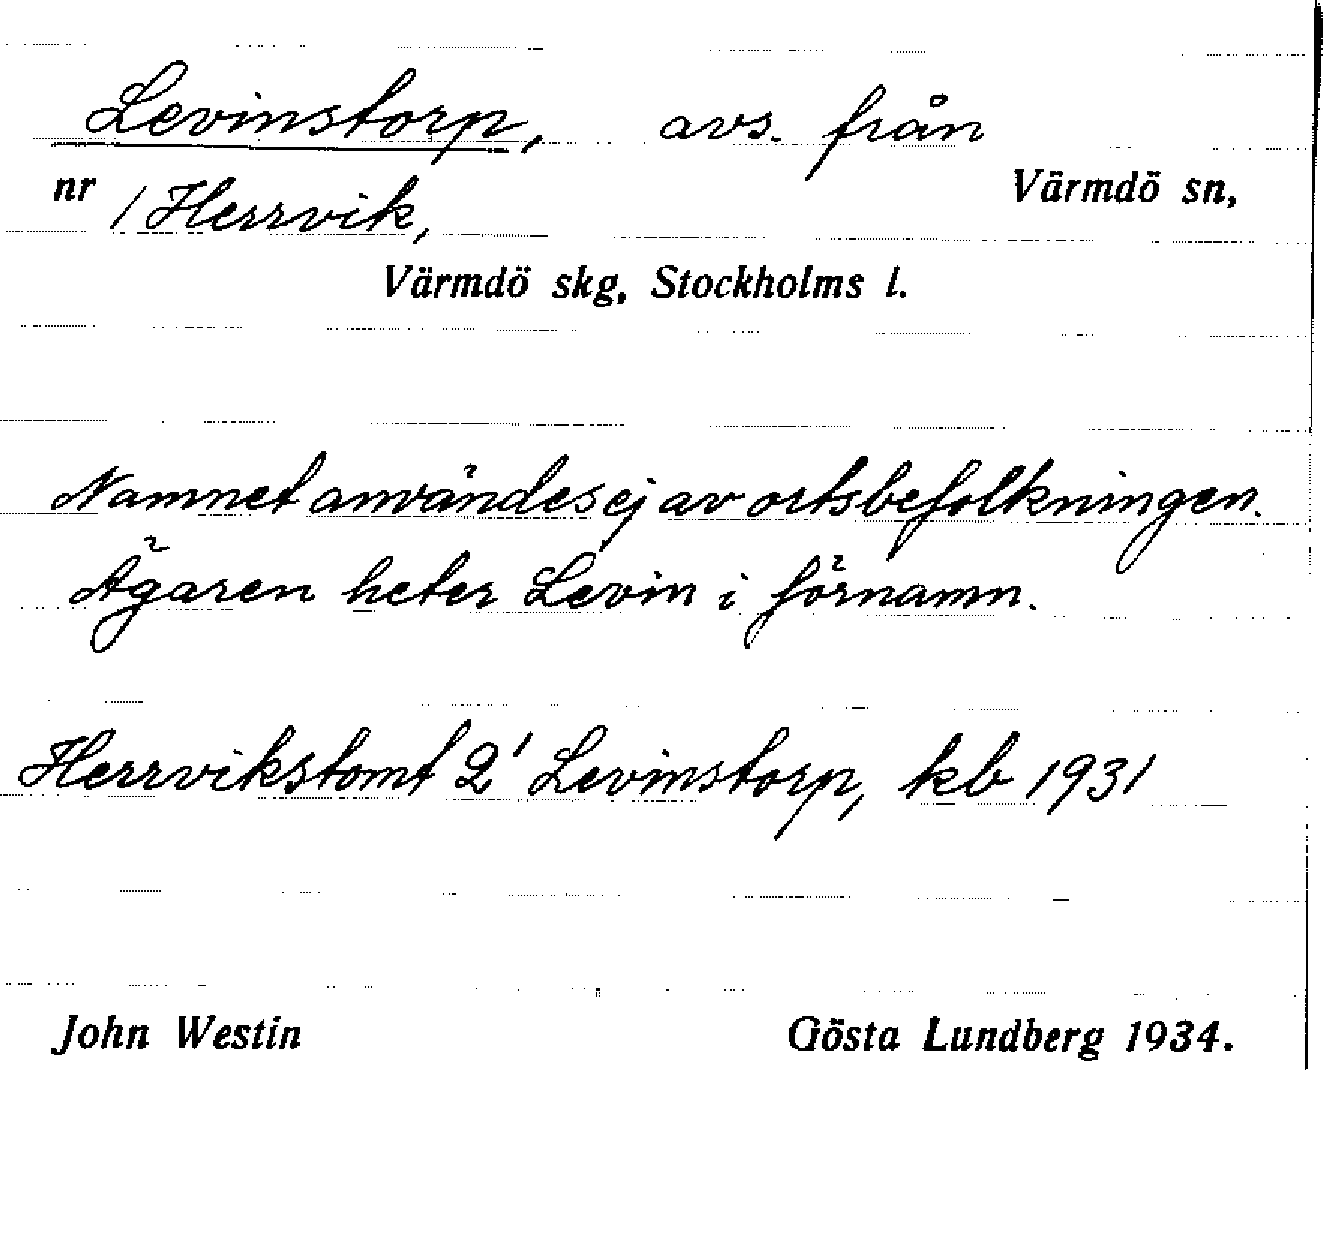 Levinstorp, avs. från
nr 1 Herrvik, Värmdö sn,
Värmdö skg, Stockholms l.
Namnet användes ej av ortsbefolkningen.
Ägaren heter Levin i förnamn.
Herrvikstomt 2¹ Levinstorp, kb 1931
John Westin Gösta Lundberg 1934.